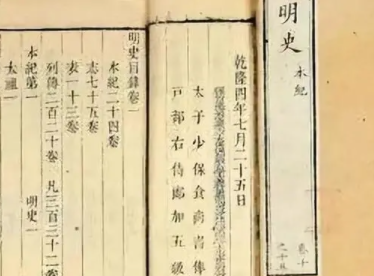 明史
本紀
乾隆四年七月二十五日
太子少保食尚書俸
戶部右侍郎加五級
明史目錄卷一
本紀二十四卷
志七十五卷
表一十三卷
列傳二百二十卷 凡三百三十二卷
本紀第一 明史一
太祖一